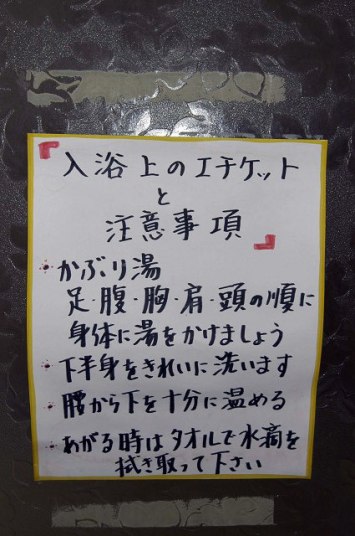 『入浴上のエチケット
と
注意事項』
・かぶり湯
足・腹・胸・肩・頭の順に
身体に湯をかけましょう
・下半身をきれいに洗います
・腰から下を十分に温める
・あがる時はタオルで水滴を
拭き取って下さい